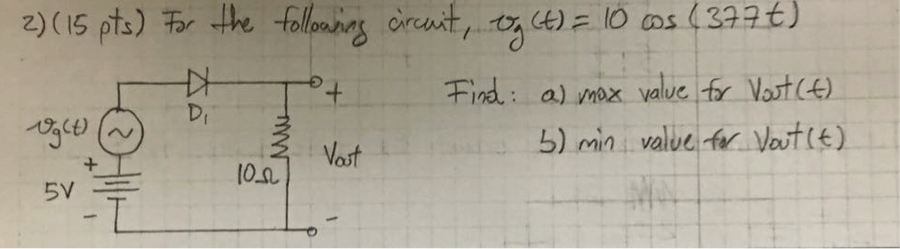 2) (15 pts) For the following circuit, vg(t) = 10 cos (377t)
Find: a) max value for Vout(t)
b) min value for Vout(t)
D1
+
vg(t)
~
+
5V
-
10Ω
Vout
-